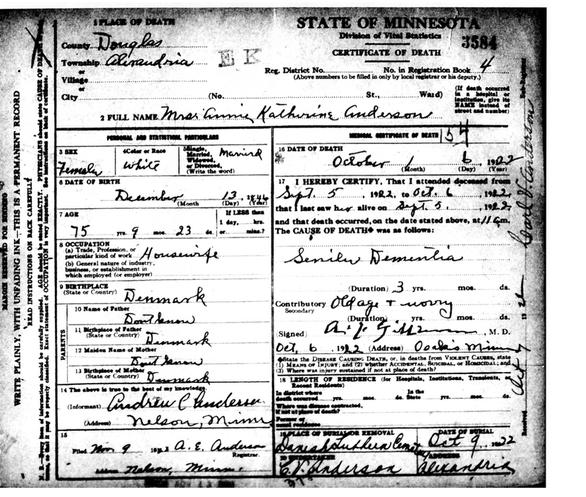 1 PLACE OF DEATH
County Douglas
Township Alexandria
or Village
or City
EK
STATE OF MINNESOTA
Division of Vital Statistics
CERTIFICATE OF DEATH
3584
Reg. District No. No. in Registration Book 4
(Above numbers to be filled in only by local registrar or his deputy.)
(No. St., Ward)
(If death occurred in a hospital or institution, give its NAME instead of street and number.)
2 FULL NAME Mrs. Annie Katherine Anderson
PERSONAL AND STATISTICAL PARTICULARS
3 SEX
Female
4 Color or Race
White
5 Single, Married, Widowed, or Divorced, (Write the word)
Married
6 DATE OF BIRTH
December 13, 1846
(Month) (Day) (Year)
7 AGE
75 yrs. 9 mos. 23 ds.
If LESS than 1 day, hrs. or mins.?
8 OCCUPATION
(a) Trade, Profession, or particular kind of work Housewife
(b) General nature of industry, business, or establishment in which employed (or employer)
9 BIRTHPLACE
(State or Country) Denmark
PARENTS
10 Name of Father
Dont know
11 Birthplace of Father
(State or Country) Denmark
12 Maiden Name of Mother
Dont know
13 Birthplace of Mother
(State or Country) Denmark
14 The above is true to the best of my knowledge.
(Informant) Andrew C Anderson
(Address) Nelson, Minn
15
Filed Nov 9 1922 A. E. Anderson
Registrar.
Address Nelson, Minn.
MEDICAL CERTIFICATE OF DEATH
154
16 DATE OF DEATH
October 6, 1922
(Month) (Day) (Year)
17 I HEREBY CERTIFY, That I attended deceased from
Sept. 5, 1922, to Oct. 6, 1922
that I last saw her alive on Sept. 5, 1922
and that death occurred, on the date stated above, at 11 am.
The CAUSE OF DEATH was as follows:
Senile Dementia
(Duration) 3 yrs. mos. ds.
Contributory Old age + worry
Secondary
(Duration) yrs. mos. ds.
Signed M.D.
Oct 6, 1922 (Address) Osakis Minn
State the DISEASE CAUSING DEATH, or, in deaths from VIOLENT CAUSES, state
(1) MEANS OF INJURY; and (2) whether ACCIDENTAL, SUICIDAL, or HOMICIDAL;
(3) Where was injury sustained if not at place of death?
18 LENGTH OF RESIDENCE (for Hospitals, Institutions, Transients, or Recent Residents)
In district where death occurred yrs. mos. ds.
In state yrs. mos. ds.
Where was disease contracted, if not at place of death?
Former or usual residence
19 PLACE OF BURIAL OR REMOVAL
Danish Lutheran Cemetery Oct 9 1922
20 UNDERTAKER
Anderson Alexandria
MARGIN RESERVED FOR BINDING
WRITE PLAINLY, WITH UNFADING INK—THIS IS A PERMANENT RECORD
READ INSTRUCTIONS ON BACK CAREFULLY